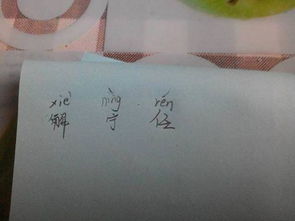 xiè nìng rén
解 宁 任